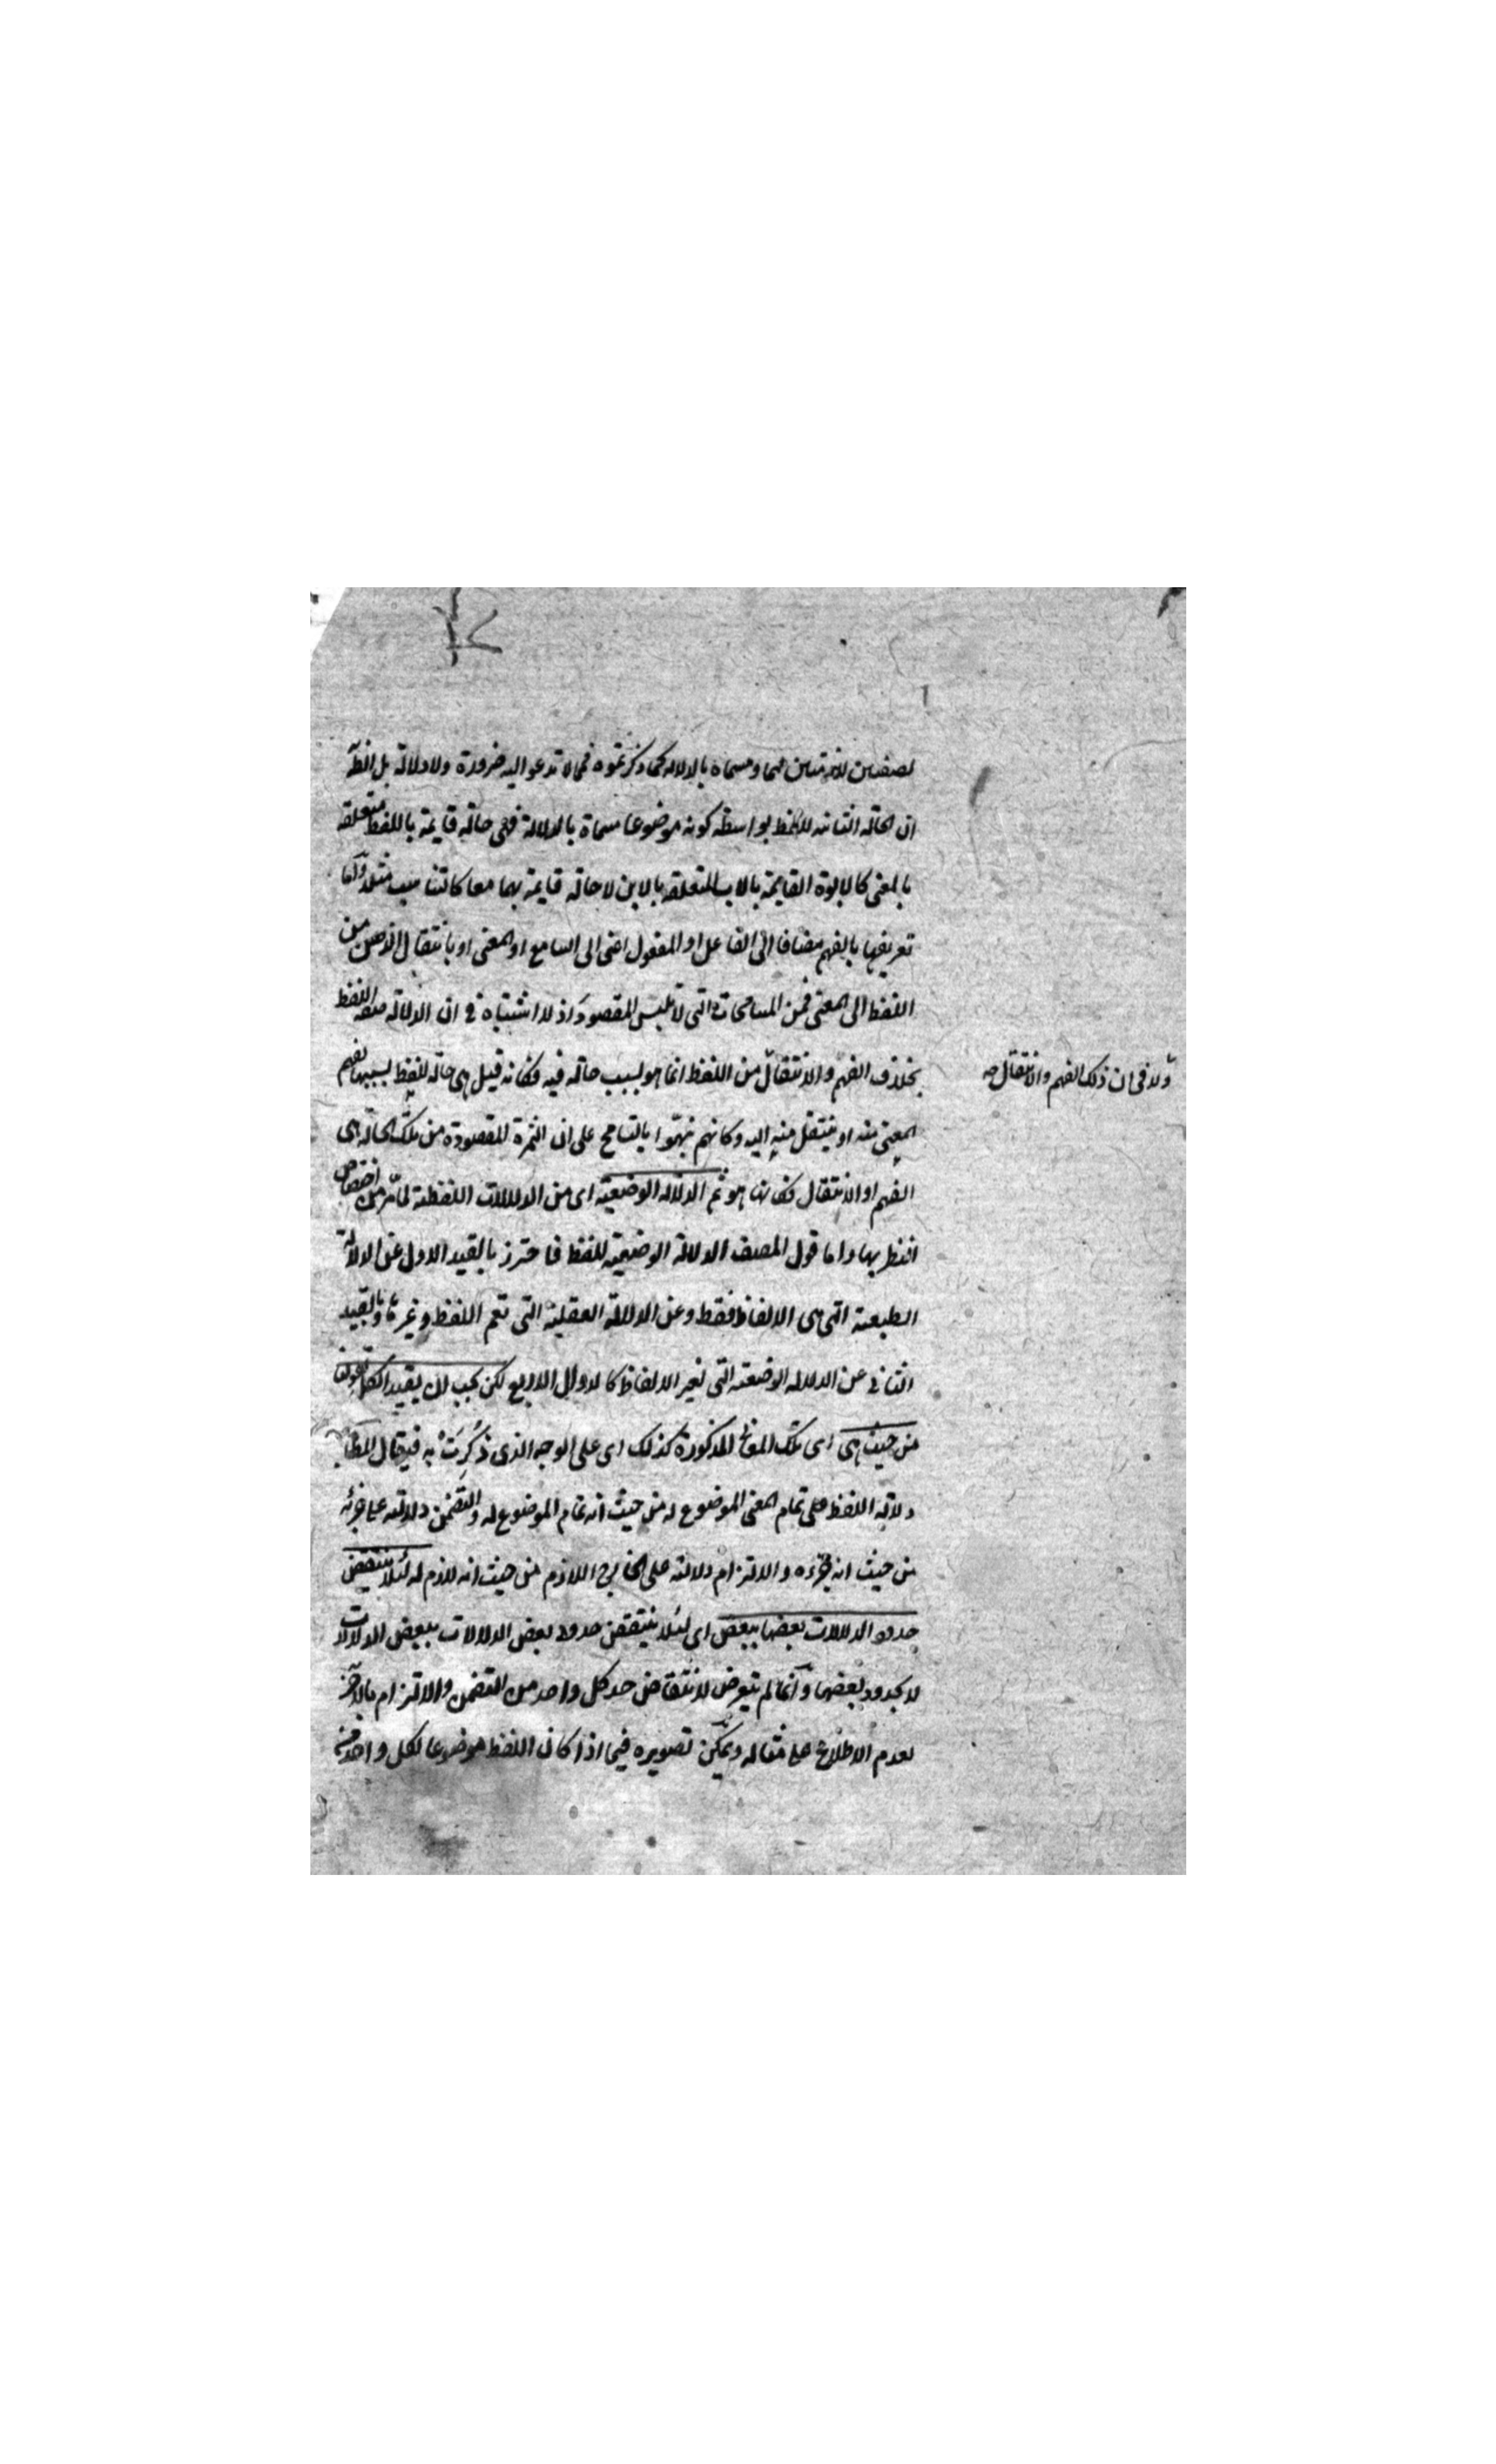 لصفتين لازمتين لهما ومسماة بالدلالة كما ذكرتموه فمما لا تدعو اليه ضرورة ولا دلالة بل الظ
ان الحالة الثابتة للفظ بواسطة كونه موضوعا مسماة بالدلالة فهى حالة قايمة باللفظ متعلقة
بالمعنى كالابوة القايمة بالاب المتعلقة بالابن لا حالة قايمة بهما معا كالتناسب مثلا واما
تعريفها بالفهم مضافا الى الفاعل او المفعول اعنى الى السامع او المعنى او بانتقال الذهن من
اللفظ الى المعنى فمن المسامحات التى لا تلبس المقصود اذ لا اشتباه فى ان الدلالة صفة اللفظ
بخلاف الفهم والانتقال من اللفظ انما هو بسبب حالة فيه فكانه قيل هى حالة للفظ بسببها يفهم
ولا فى ان ذلك الفهم والانتقال صه
المعنى منه او ينتقل منه اليه وكانهم نبهوا بالتسامح على ان الثمرة المقصودة من تلك الحالة هى
الفهم او الانتقال فكانها هو ثم الدلالة الوضعية اى من الدلالات اللفظية لما مر من اختصاص
النظر بها واما قول المصنف الدلالة الوضعية للفظ فاحترز بالقيد الاول عن الدلالة
الطبعية التى هى الالفاظ فقط وعن الدلالة العقلية التى تعم اللفظ وغيرها وبالقيد
الثانى عن الدلالة الوضعية التى لغير الالفاظ كالدوال الاربع لكن يجب ان يقيد الكل بقولنا
من حيث هى اى تلك المعانى المذكورة كذلك اى على الوجه الذى ذُكِرَتْ به فيقال المطابقة
دلالة اللفظ على تمام المعنى الموضوع له من حيث انه تمام الموضوع له والتضمن دلالته على جزئه
من حيث انه جزءه والالتزام دلالته على الخارج اللازم من حيث انه لازم له لئلا ينتقض
حدود الدلالات بعضها ببعض اى لئلا ينتقض حدود بعض الدلالات ببعض الدلالات
لا بحدود بعضها وانما لم يتعرض لانتقاض حد كل واحد من التضمن والالتزام بالاخر
لعدم الاطلاع على مثاله ويمكن تصويره فيما اذا كان اللفظ موضوعا لكل واحد من